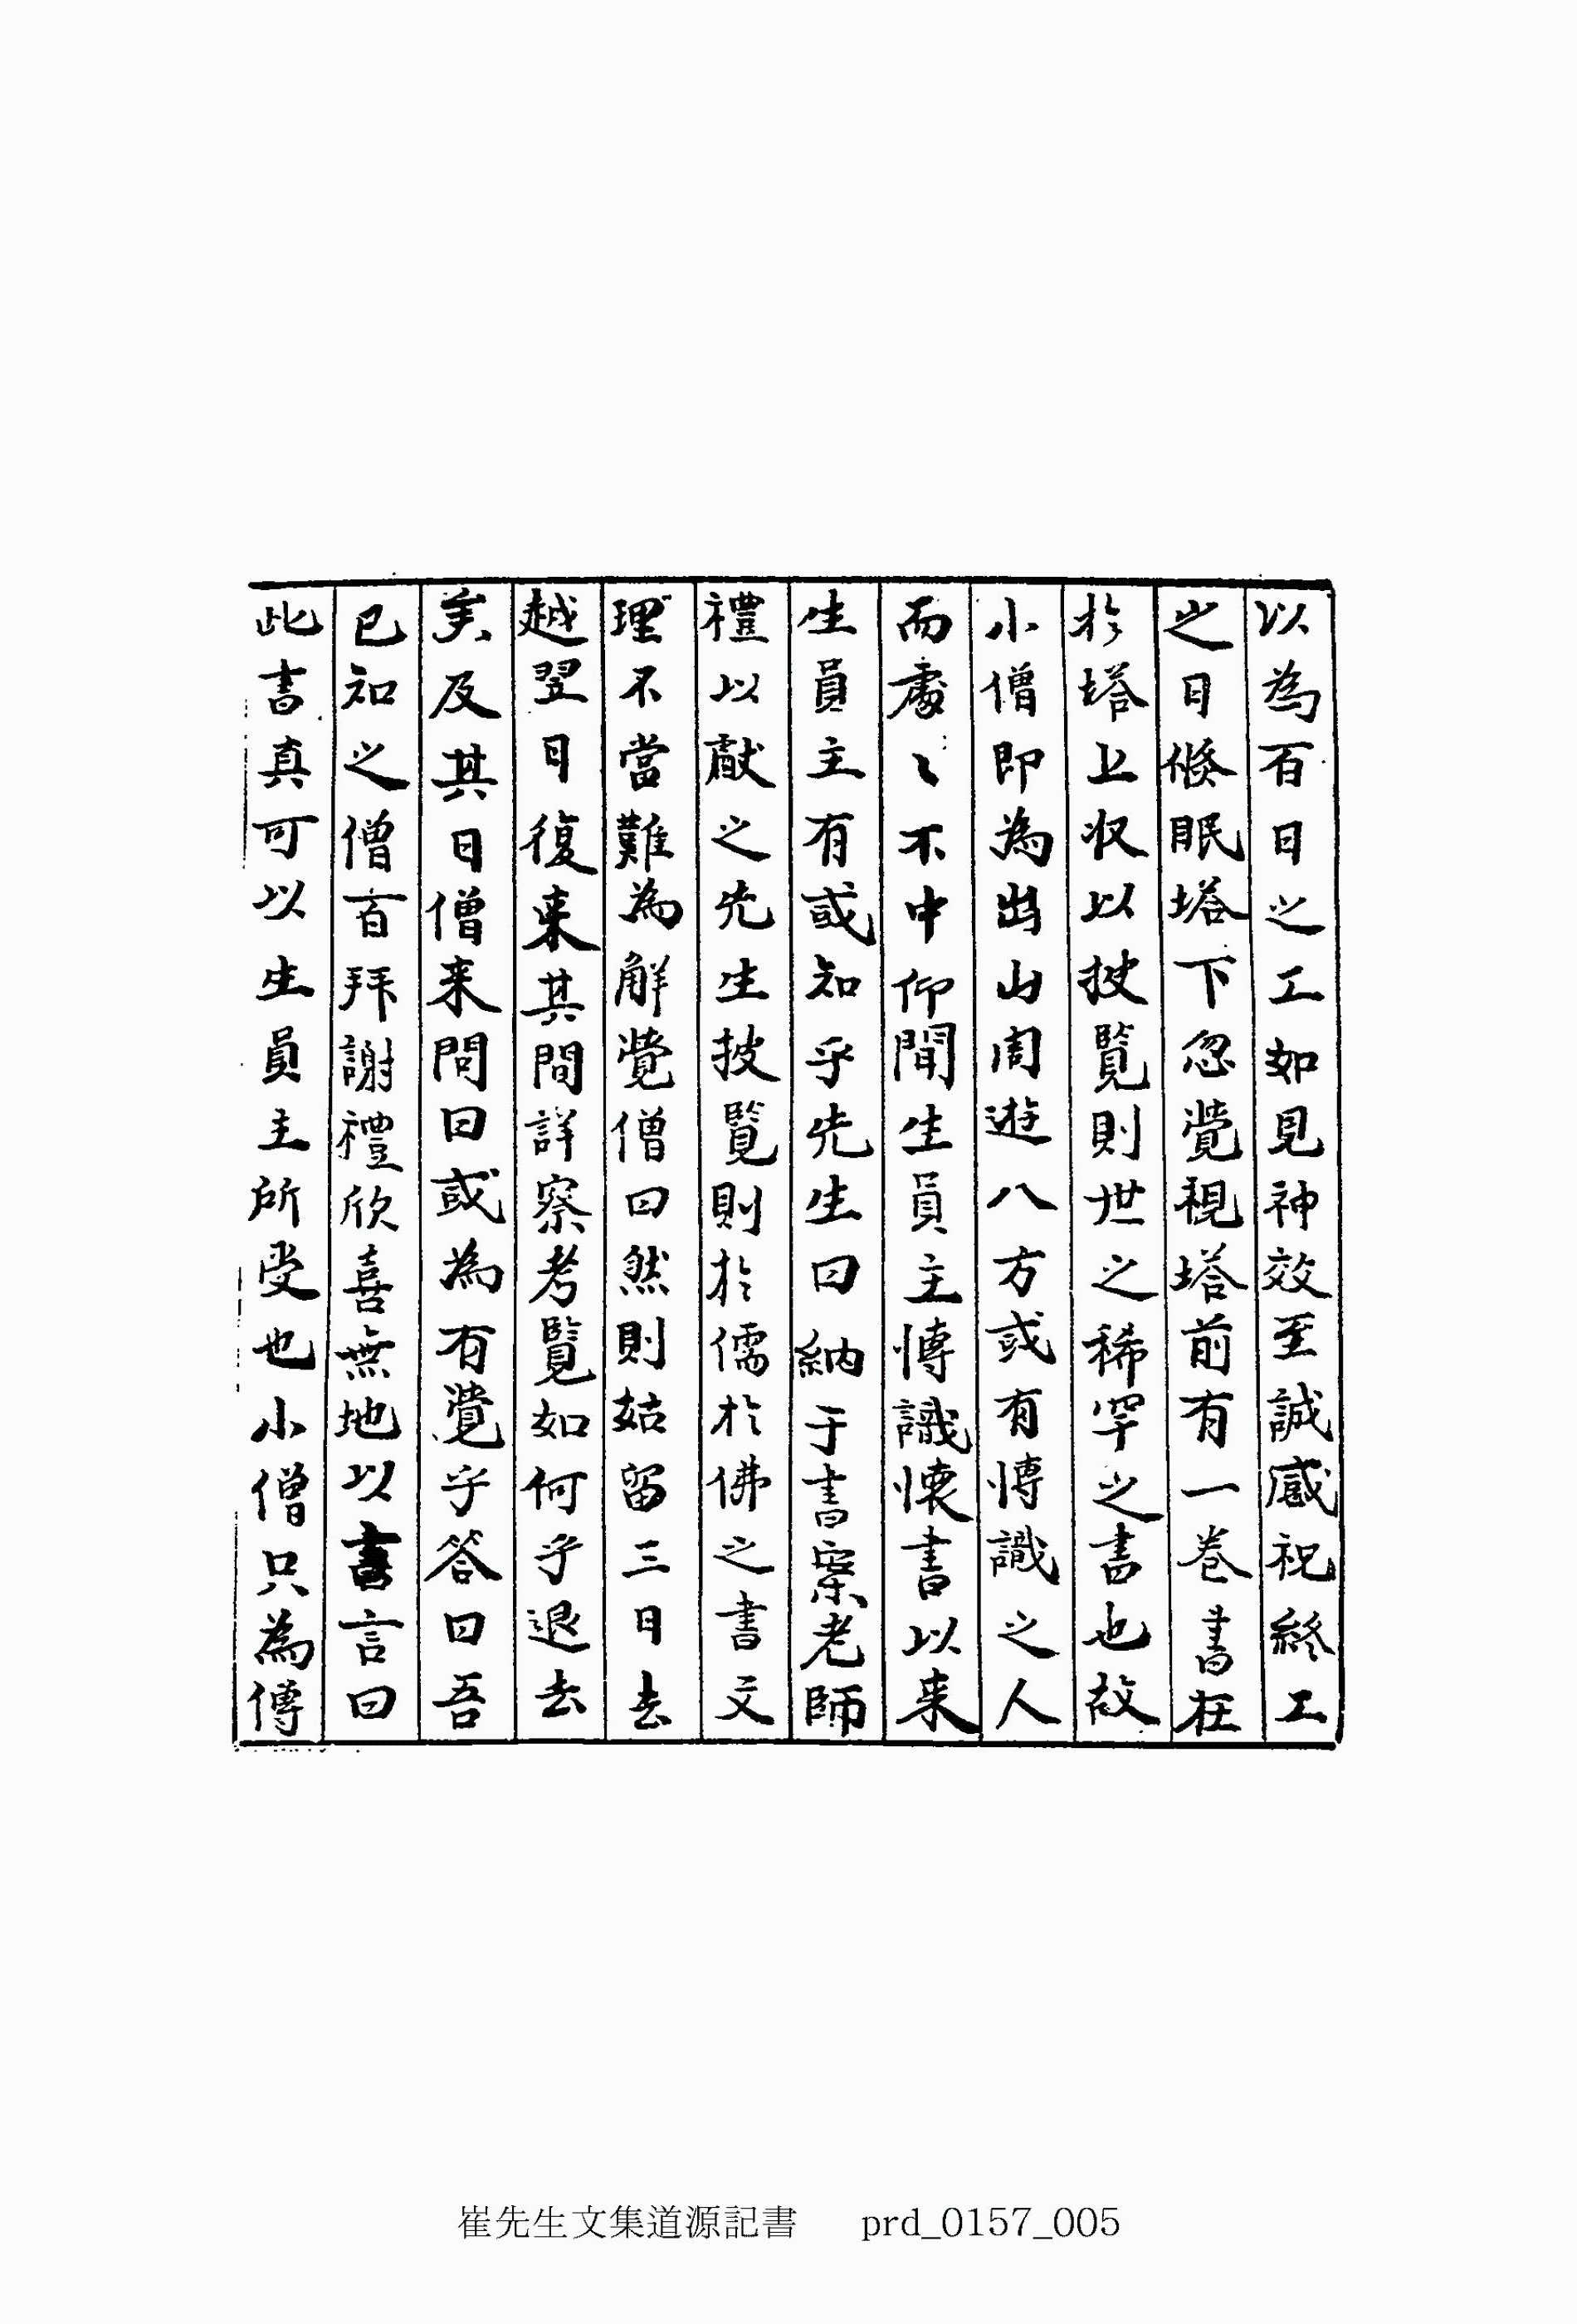 以為百日之工如見神效至誠感祝終工
之日倏眠塔下忽覺視塔前有一卷書在
於塔上収以披覽則世之稀罕之書也故
小僧即為出山周遊八方或有愽識之人
而處〻不中仰聞生員主愽識懷書以来
生員主有或知乎先生曰納于書案老師
禮以獻之先生披覽則於儒於佛之書文
理不當難為觧覺僧曰然則姑留三日去
越翌日復来其間詳察考覽如何乎退去
矣及其日僧来問曰或為有覺乎答曰吾
已知之僧百拜謝禮欣喜無地以書言曰
此書真可以生員主所受也小僧只為傳
崔先生文集道源記書 prd_0157_005